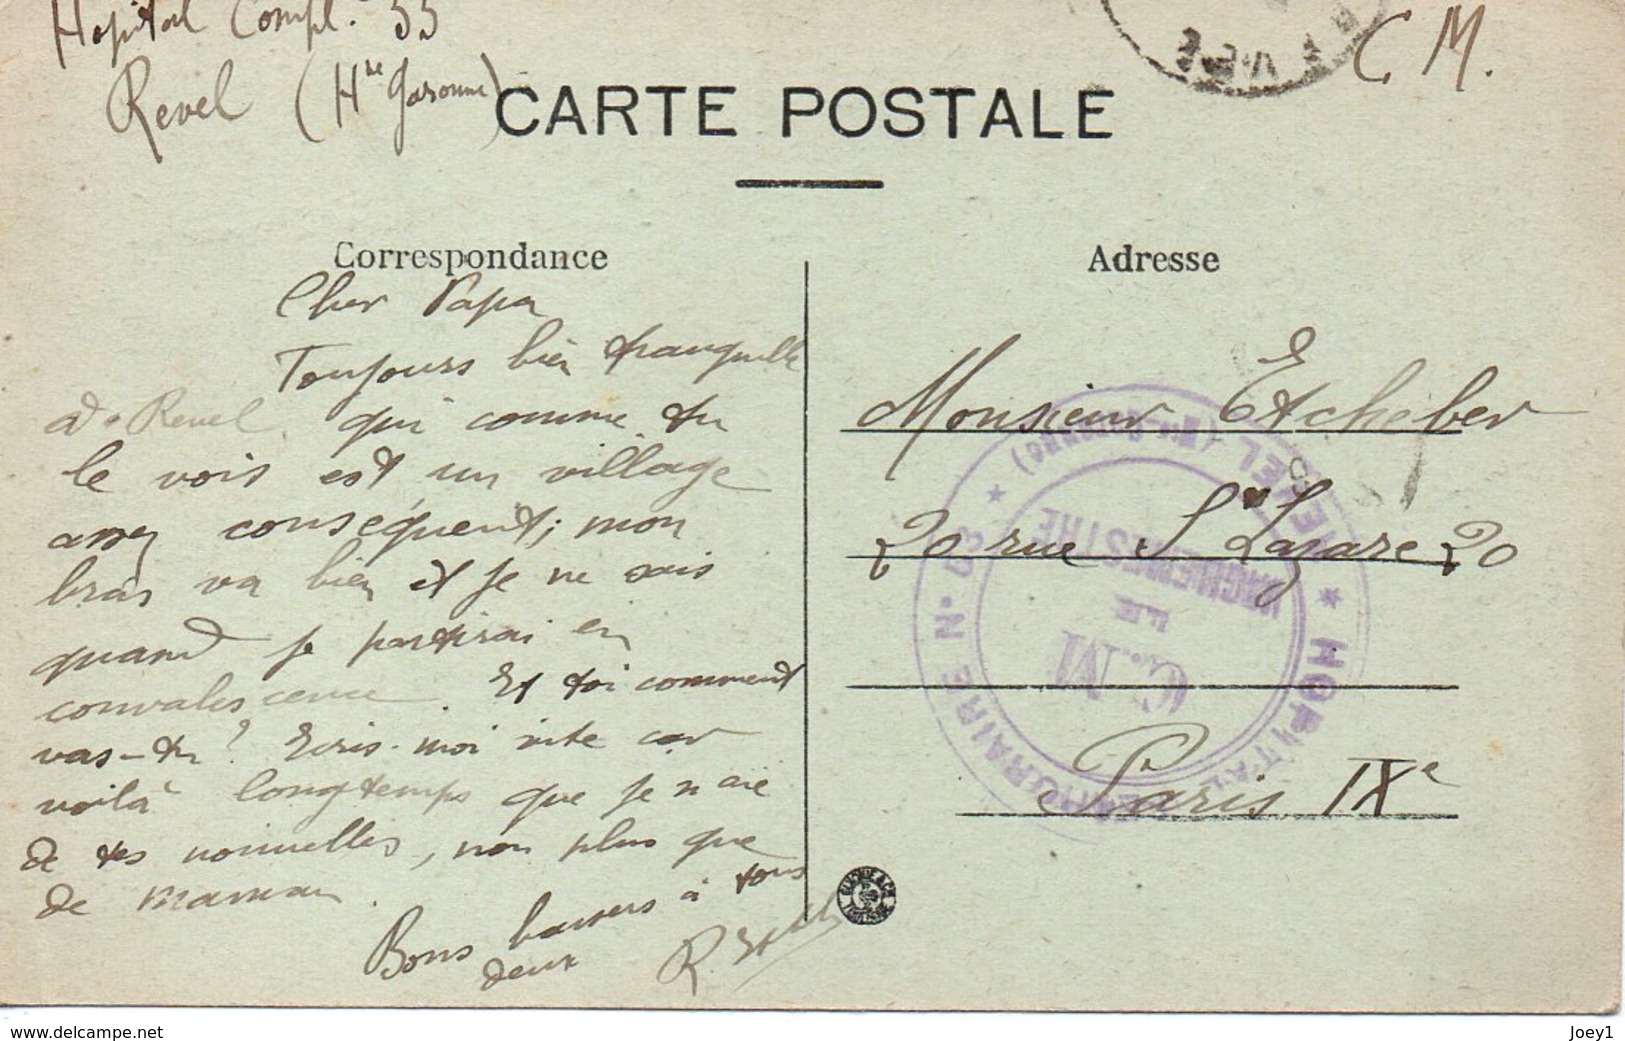 Hopital Compl. 33
Revel (Hte Garonne)
C. M.
CARTE POSTALE
Correspondance
Adresse
Cher Papa
Toujours bien tranquille
à Revel qui comme tu
le vois est un village
assez conséquent; mon
bras va bien et je ne sais
quand je partirai en
convalescence. Et toi comment
vas-tu? Ecris-moi vite car
voilà longtemps que je n'aie
de tes nouvelles, non plus que
de maman.
Bons baisers à tous
deux
Monsieur Etcheber
20 rue St Lazare 20
Paris IXe
★ HOPITAL TEMPORAIRE N° ★ REVEL (Hte-Garonne)
C.M
www.delcampe.net
Joey1